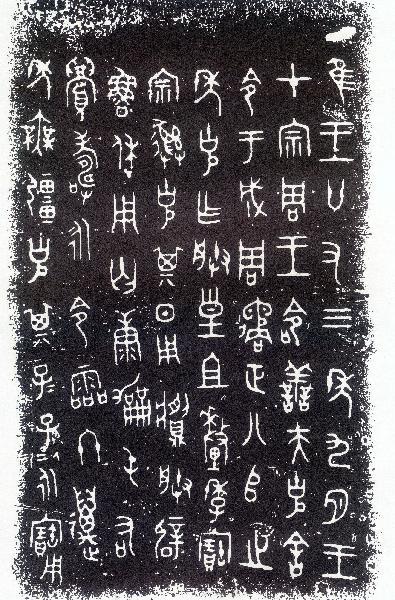 隹王廿又三年九月王
才宗周王命善夫克舍
令于成周遹正八𠂤之
年克乍朕皇且釐季寶
宗彝克其日用䵼朕辟
魯休用匄康勒屯右
眉壽永令霝冬萬
年無彊克其子子孫孫永寶用